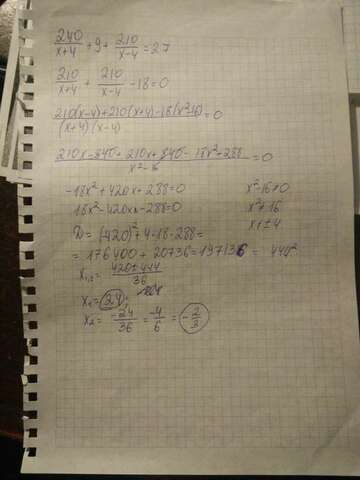 240/(x+4) + 9 + 210/(x-4) = 27
210/(x+4) + 210/(x-4) - 18 = 0
(210(x-4)+210(x+4)-18(x²-16))/((x+4)(x-4)) = 0
(210x-840+210x+840-18x²+288)/(x²-16) = 0
-18x²+420x+288=0 x²-16≠0
18x²-420x-288=0 x²≠16
x≠±4
D=(420)²+4·18·288=
=176400+20736=197136=444²
x₁,₂=(420±444)/36
x₁=24;
x₂=-24/36=-4/6=-2/3